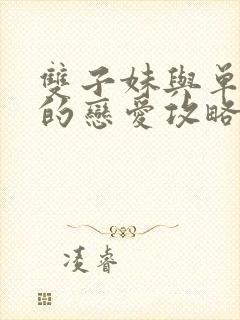 雙子妹與單
的戀愛攻略
凌睿